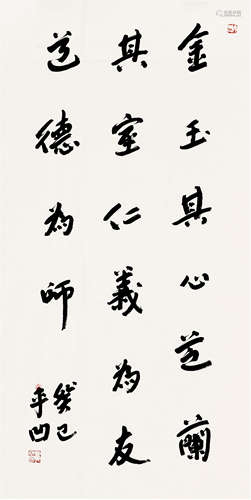 金玉其心芝蘭
其室仁義為友
道德為師
癸巳
平凹